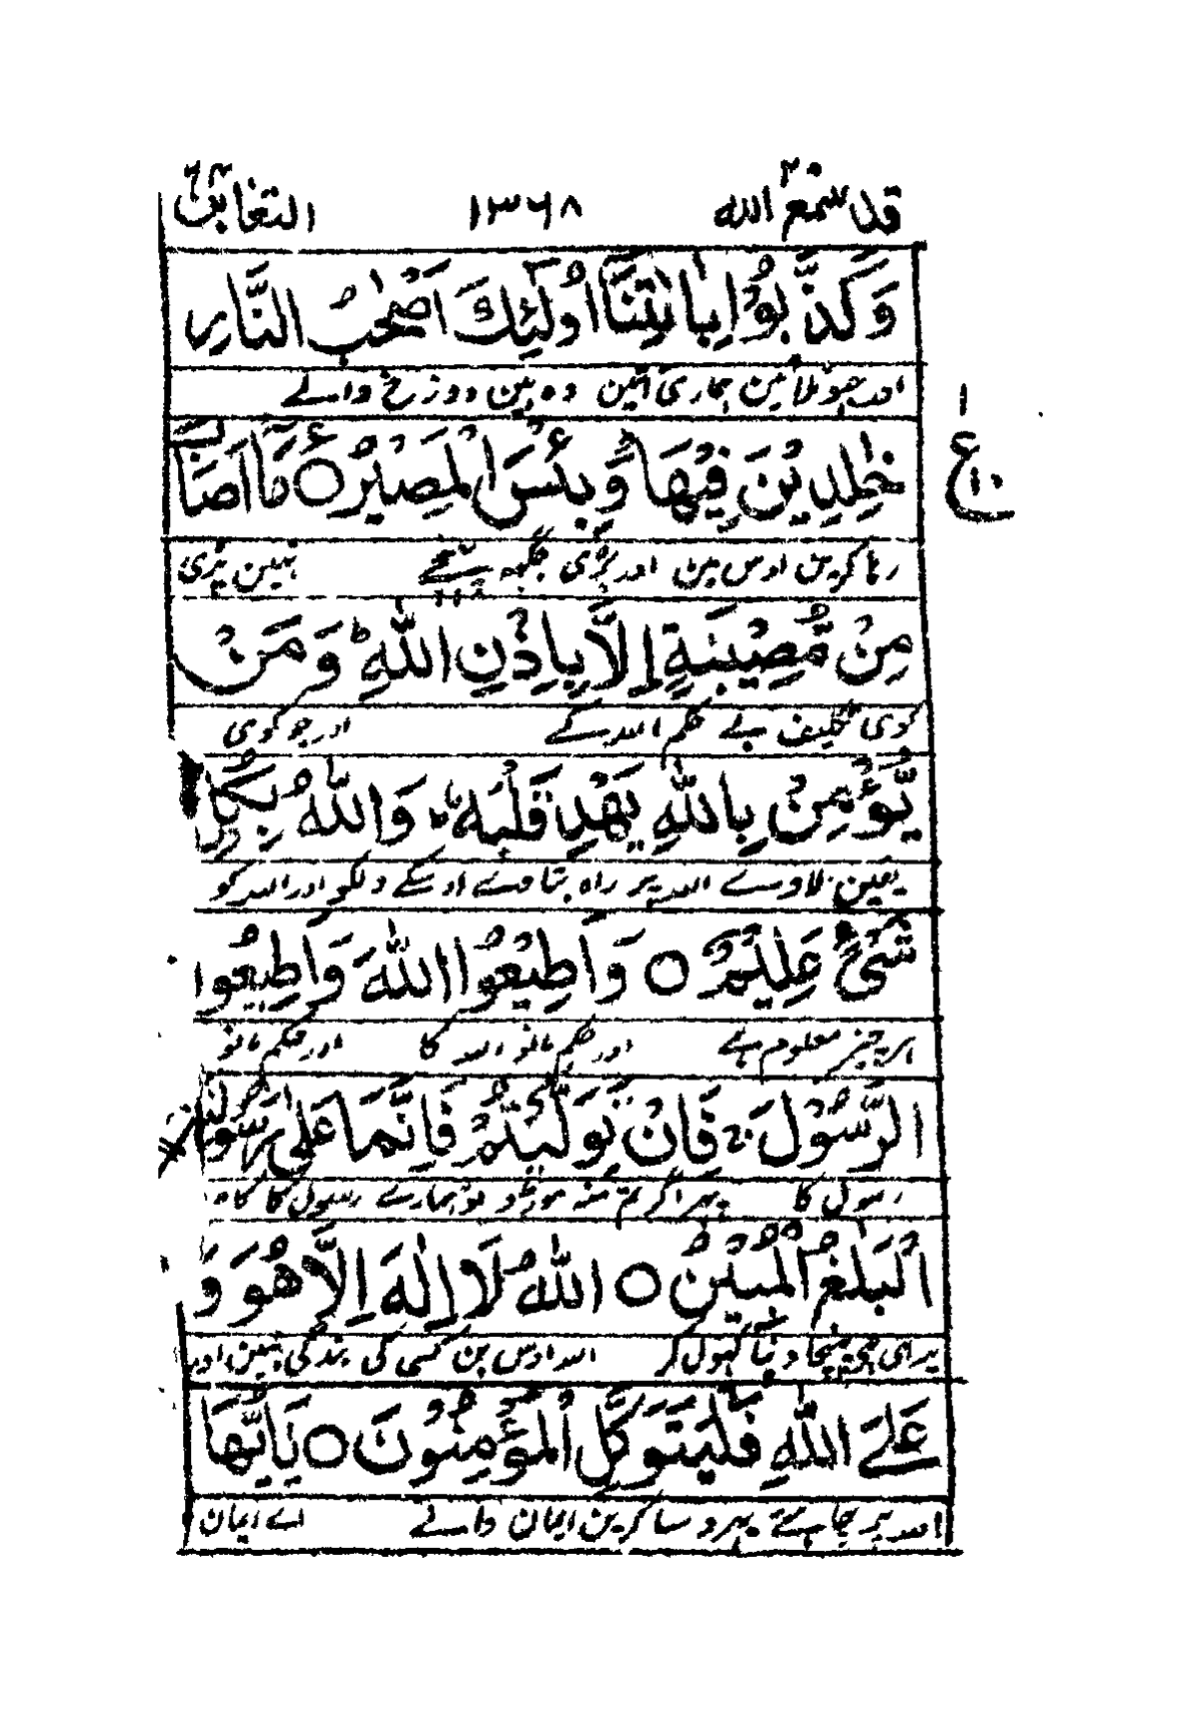 قد سمع الله ٢٨ ١٣٦٨ التغابن ٦٤
وَكَذَّبُوْا بِاٰيٰتِنَآ اُولٰٓئِكَ اَصْحٰبُ النَّارِ
اور جھٹلائین ہماری آیتین وہ ہین دوزخ والے
خٰلِدِيْنَ فِيْهَا ؕ وَبِئْسَ الْمَصِيْرُ ○ مَآ اَصَابَ
رہا کرین اوس مین اور بڑی جگہہ پہنچے نہین پڑی
ع ١ ١٠
مِنْ مُّصِيْبَةٍ اِلَّا بِاِذْنِ اللّٰهِ ؕ وَمَنْ
کوی تکلیف بے حکم اللہ کے اور جو کوی
يُّؤْمِنْ بِاللّٰهِ يَهْدِ قَلْبَهٗ ؕ وَاللّٰهُ بِكُلِّ
یقین لاوے اللہ پر راہ بتاوے اوسکے دلکو اور اللہ کو
شَیْءٍ عَلِيْمٌ ○ وَاَطِيْعُوا اللّٰهَ وَاَطِيْعُوا
ہر چیز معلوم ہے اور حکم مانو اللہ کا اور حکم مانو
الرَّسُوْلَ ۚ فَاِنْ تَوَلَّيْتُمْ فَاِنَّمَا عَلٰى رَسُوْلِنَا
رسول کا پہر اگر تم منہ موڑو تو ہمارے رسول کا کام
الْبَلٰغُ الْمُبِيْنُ ○ اَللّٰهُ لَآ اِلٰهَ اِلَّا هُوَ ؕ وَ
یہی ہی پہنچا دینا کہول کر اللہ اوس بن کسی کی بندگی نہین اور
عَلَى اللّٰهِ فَلْيَتَوَكَّلِ الْمُؤْمِنُوْنَ ○ يٰٓاَيُّهَا
اللہ پر چاہئے بہروسا کرین ایمان والے اے ایمان